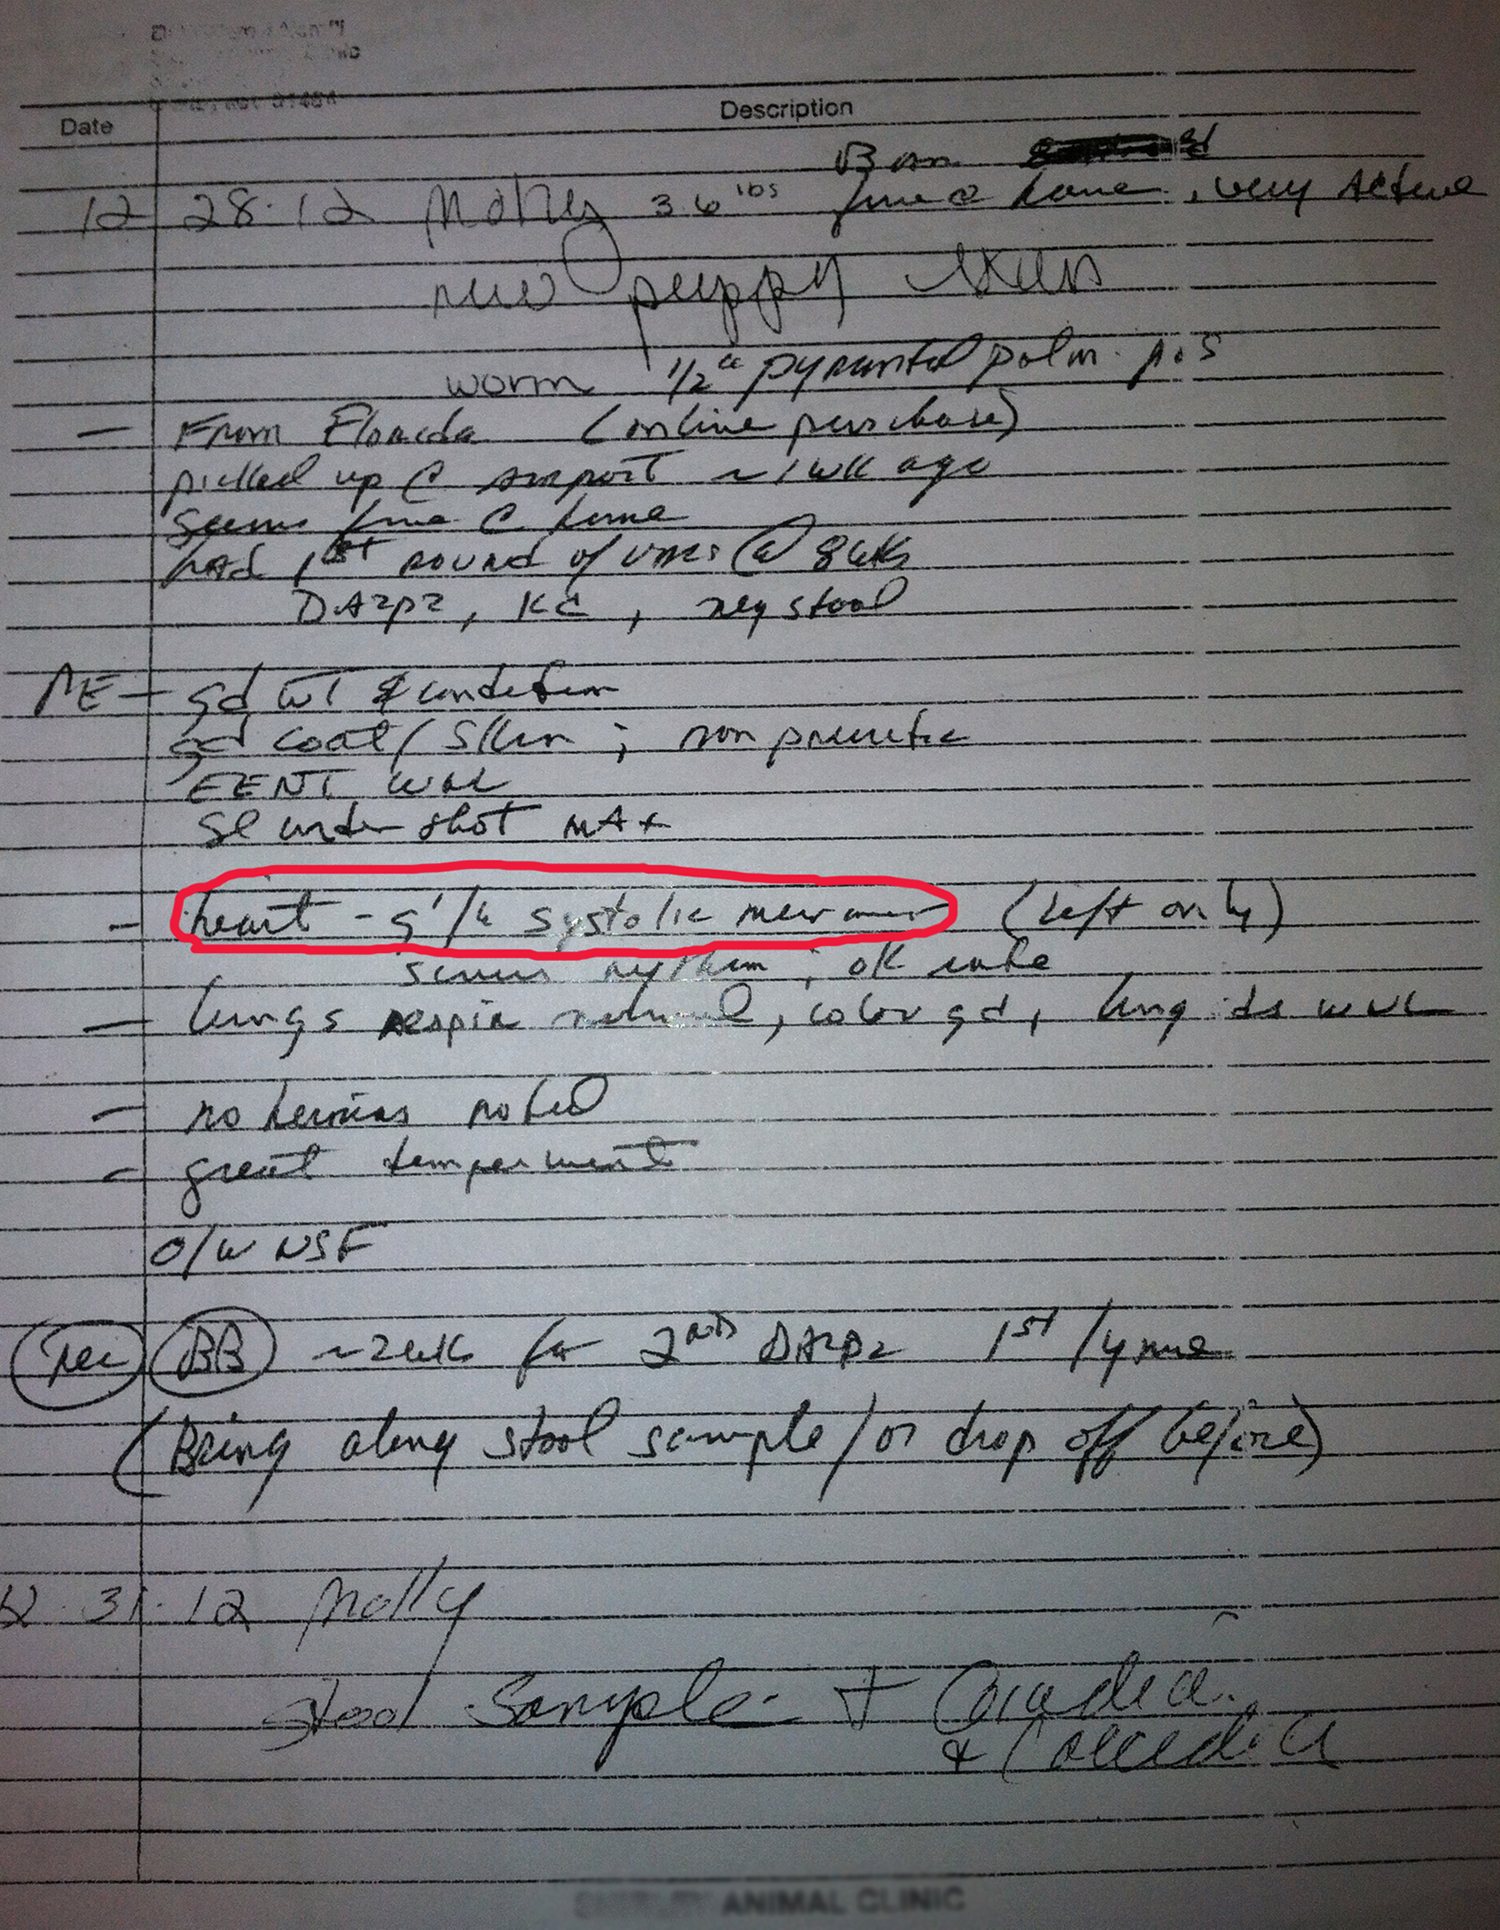 Date Description
BAR
12 28-12 Molly 3.6 lbs fine @ home, very active
new puppy exam
worm 1/2 cc pyrantel palm. p.o.
- From Florida (online purchase)
picked up @ airport ~1wk ago
seems fine @ home
had 1st round of vacs @ 8wks
DA2P2, KC, neg stool
PE - gd wt & condition
gd coat/skin; non pruritic
EENT WNL
sl undershot max
- heart - g 1/6 systolic murmur (left only)
sinus rythm; ok rate
- lungs respir natural, color gd, lung ds WNL
- no hernias noted
- great temperment
O/W NSF
rec BB ~2wks for 2nd DA2P2 1st lyme
(Bring along stool sample/or drop off before)
12-31-12 Molly
stool Sample +
&
ANIMAL CLINIC